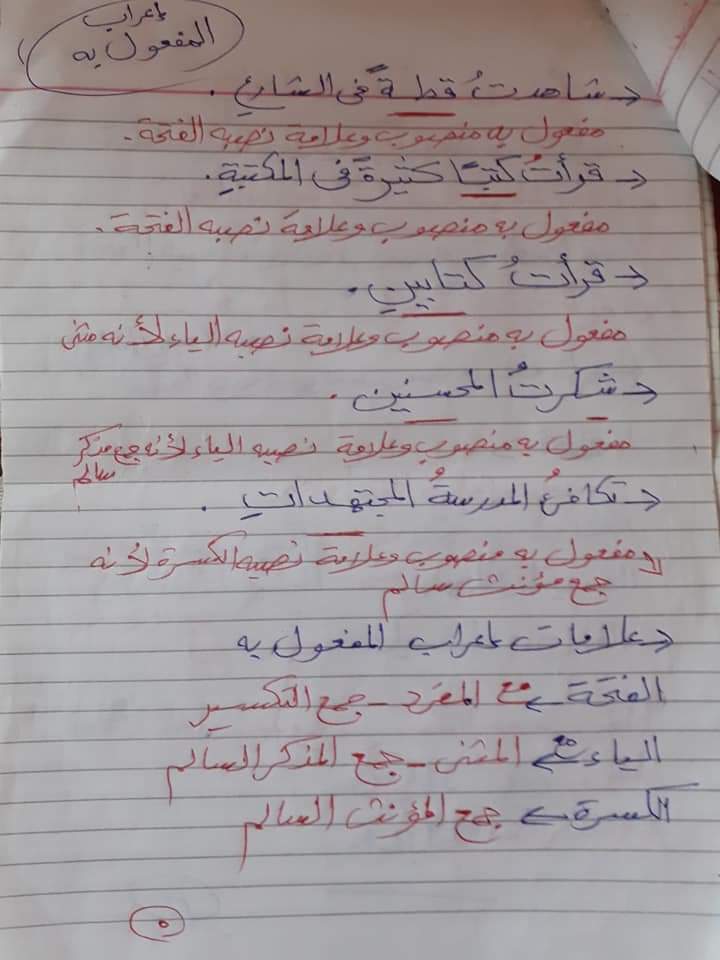 إعراب
المفعول به
شاهدتُ قطةً فى الشارعِ .
مفعول به منصوب وعلامة نصبه الفتحة.
قرأتُ كتبًا كثيرةً فى المكتبةِ.
مفعول به منصوب وعلامة نصبه الفتحة.
قرأتُ كتابينِ .
مفعول به منصوب وعلامة نصبه الياء لأنه مثنى
شكرتُ المحسنين .
مفعول به منصوب وعلامة نصبه الياء لأنه جمع مذكر
سالم
تكافئُ المدرسةُ المجتهداتِ .
مفعول به منصوب وعلامة نصبه الكسرة لأنه
جمع مؤنث سالم
علامات إعراب المفعول به
الفتحة مع المفرد - جمع التكسير
الياء مع المثنى - جمع المذكر السالم
الكسرة جمع المؤنث السالم
٥